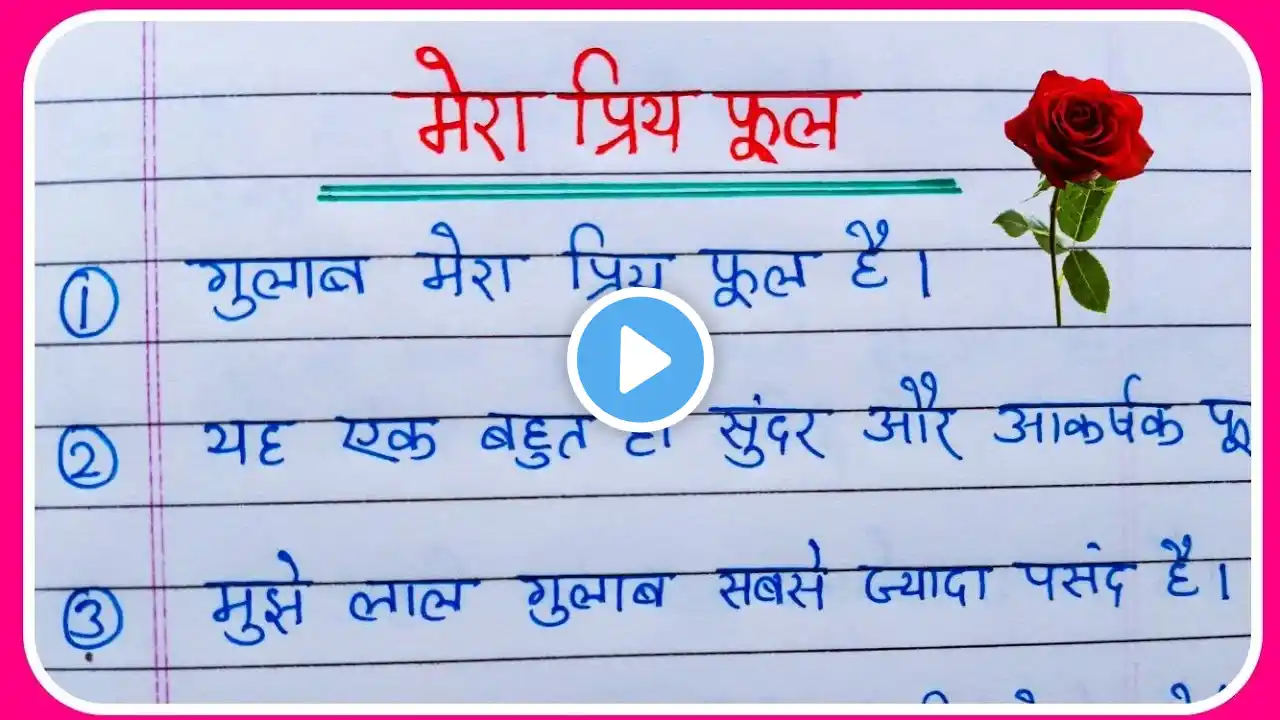 मेरा प्रिय फूल
1 गुलाब मेरा प्रिय फूल है।
2 यह एक बहुत ही सुंदर और आकर्षक
3 मुझे लाल गुलाब सबसे ज्यादा पसंद है।